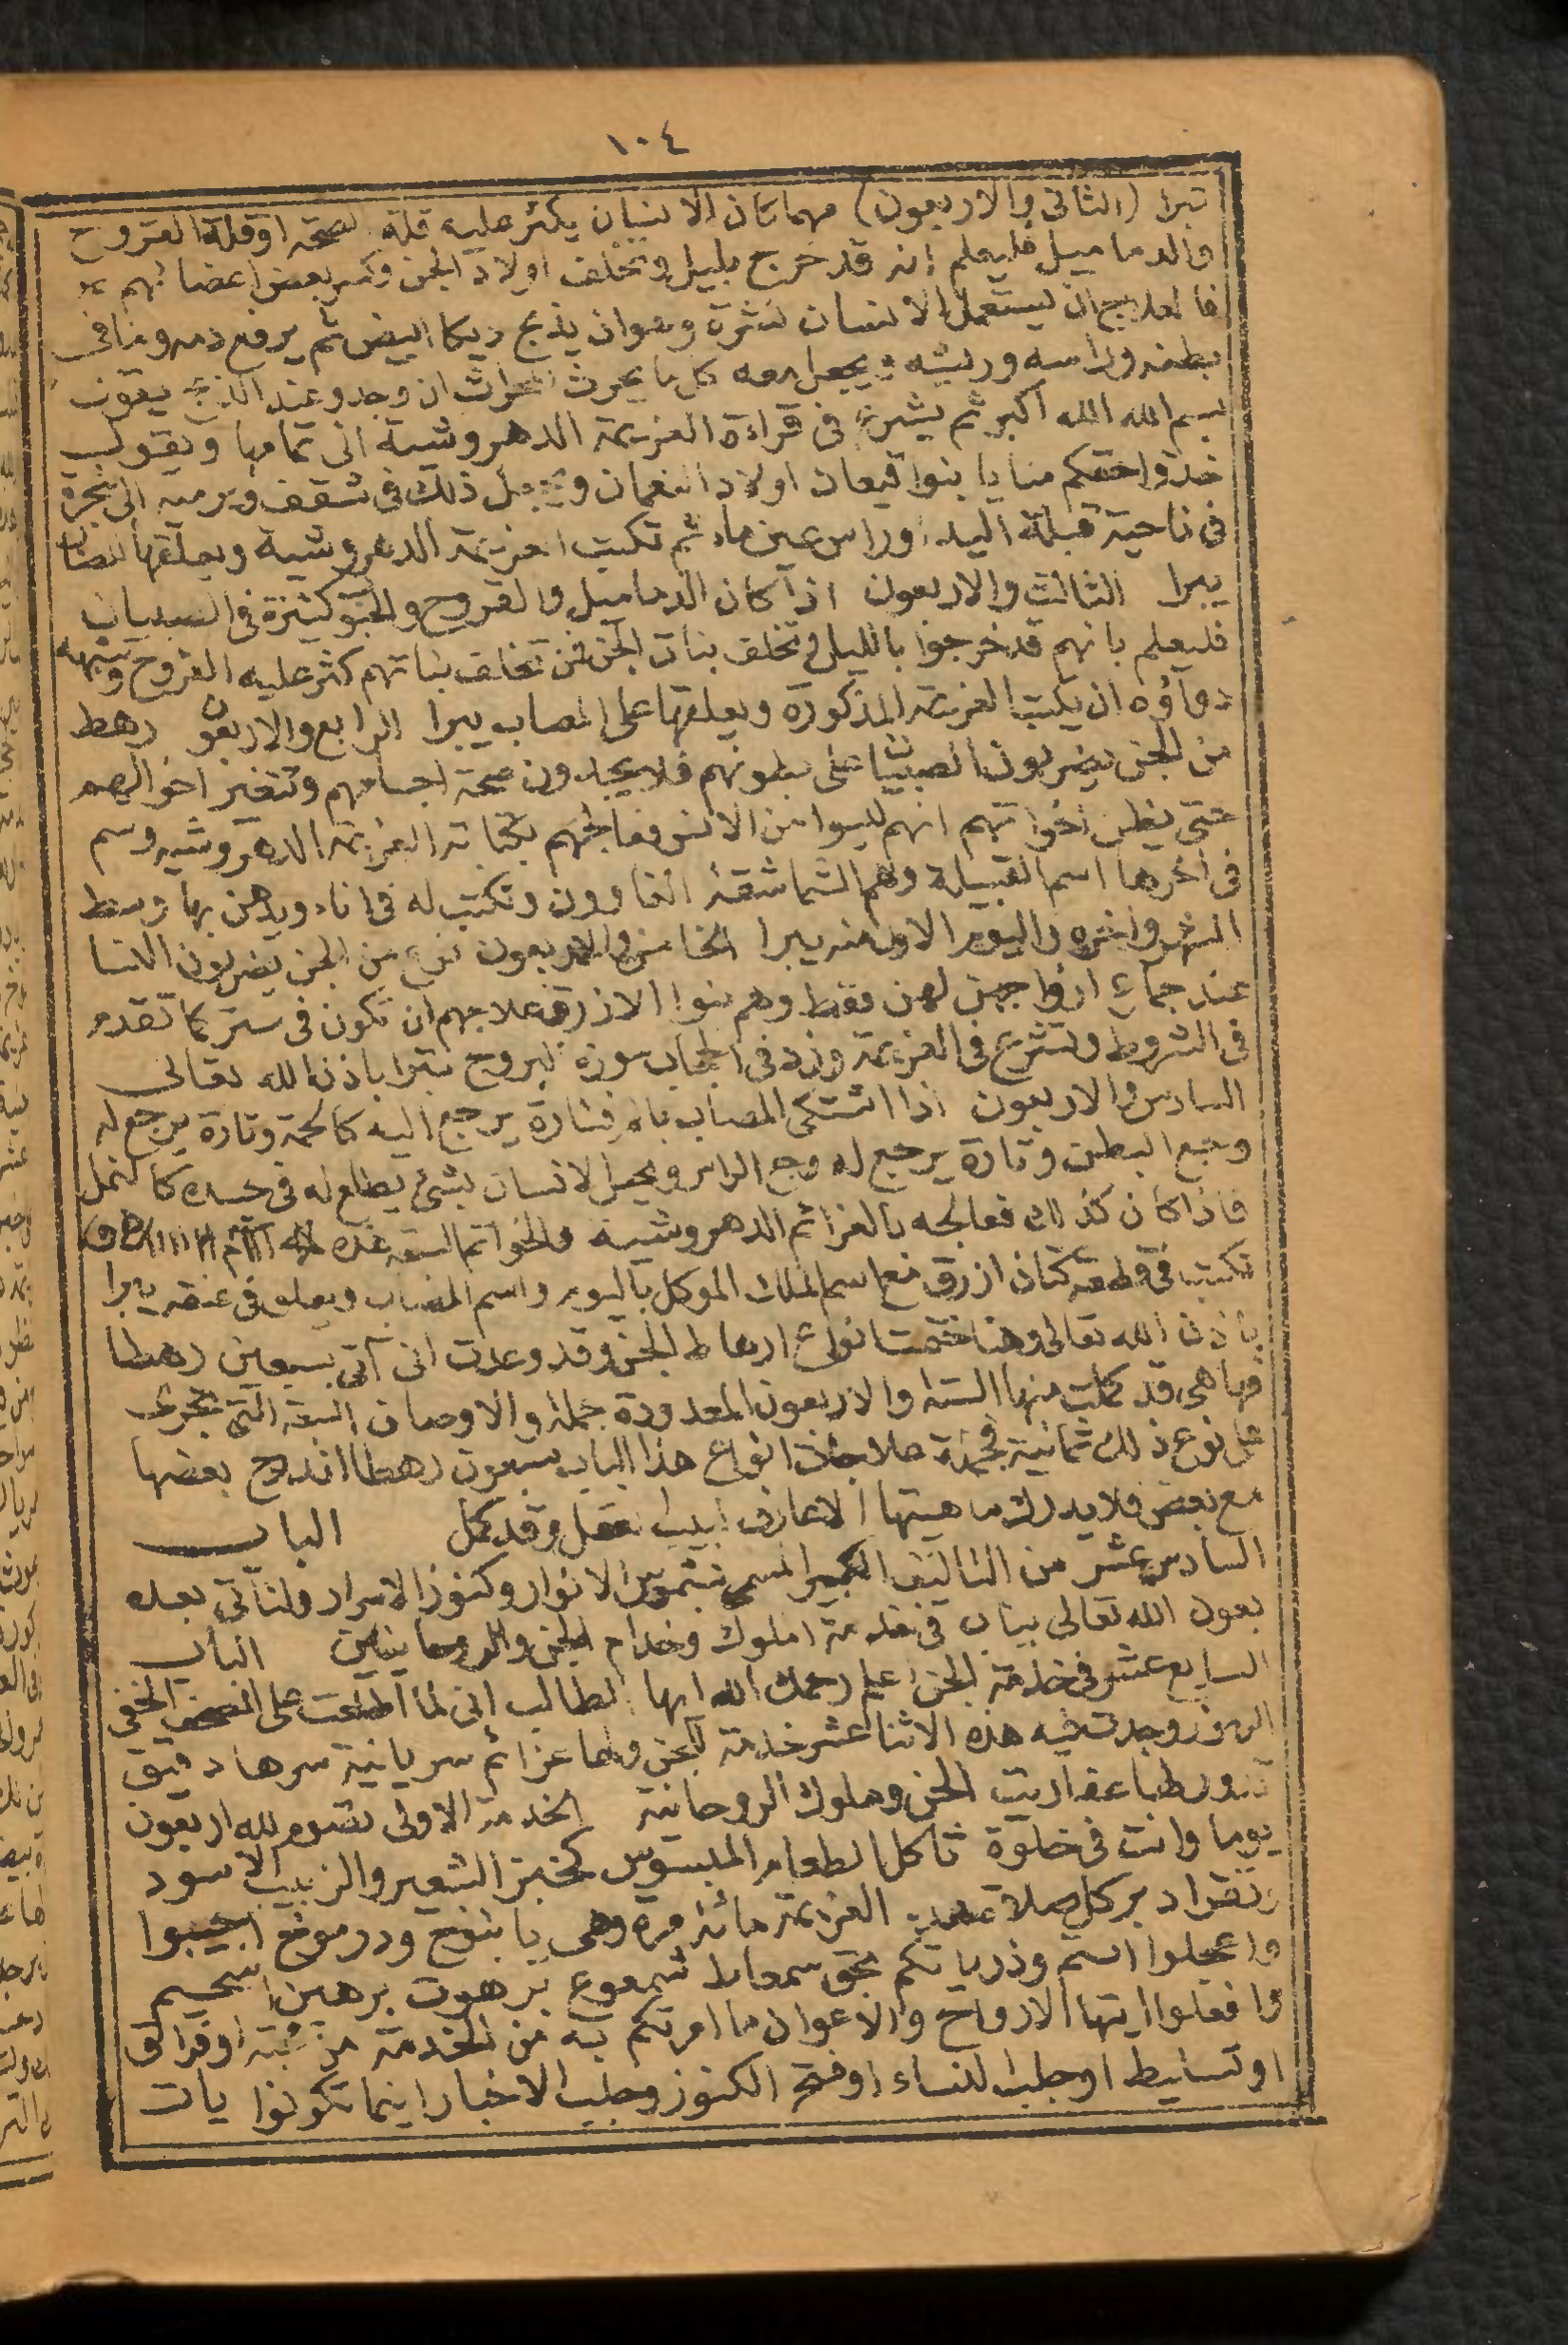 ١٠٤
تبرا (الثانى والاربعون) مهما كان الانسان يكثر عليه قلة الصحة او قلة القروح
والدماميل فليعلم انه قد خرج بليل وتخلف اولاد الجن وكسر بعض اعضائهم
فالعلاج ان يستعمل الانسان نشرة وهوان يذبح ديكا ابيض ثم يرفع دمه وما فى
بطنه وراسه وريشه ويجعل معه كل ما يحرث الحراث ان وجد وعند الذبح يقول
بسم الله الله اكبر ثم يشرع فى قراءة العزيمة الدهروشية الى تمامها ويقول
خذوا حقكم منا يا بنوا قيعان اولاد النعمان و ذلك فى شقف ويرميه الى شجرة
فى ناحية قبلة البلد او راس عين ماء ثم تكتب العزيمة الدهروشية ويعلقها المصاب
يبرا الثالث والاربعون اذا كان الدماميل والقروح والحبو كثيرة فى الصبيان
فليعلم بانهم قد خرجوا بالليل وتخلف بنات الجن فمن تخلف بناتهم كثر عليه القروح وشبهه
دواؤه ان يكتب العزيمة المذكورة ويعلقها على المصاب يبرا الرابع والاربعون رهط
من الجن يضربون الصبيان على بطونهم فلا يجدون صحة اجسامهم وتتغير احوالهم
حتى يظن اخواتهم انهم ليسوا من الانس فعالجهم بكتابة العزيمة الدهروشيه وسم
فى اخرها اسم القبيلة وهم الشماشقة الغاوون وتكتب له فى اناء ويدهن بها وسط
الشهر واخره واليوم الاول منه يبرا الخامس والاربعون نوع من الجن يضربون النسا
عند جماع ازواجهن لهن فقط وهم بنوا الازرق علاجهم ان تكون فى ستر كما تقدم
فى الشروط وتشرع فى العزيمة وزد فى الحجاب سورة البروج تبرا باذن الله تعالى
السادس والاربعون اذا اشتكى المصاب بالم فتارة يرجع اليه كالحمة وتارة يرجع له
وجع البطن وتارة يرجع له وجع الراس ويحس الانسان بشئ يطلع له فى جسده كالنمل
فاذا كان كذلك فعالجه بالعزائم الدهروشية والخواتم السبعة هذه
تكتب فى قطعة كتان ازرق مع اسم الملك الموكل باليوم واسم المصاب ويعلق فى عنقه يبرا
باذن الله تعالى وهنا ختمت انواع ارهاط الجن وقد وعدت انى آتى بسبعين رهطا
فها هى قد كملت منها الستة والاربعون المعدودة جملة والاوصاف السبعة التى تجرى
على نوع ذلك ثمانية انواع هذا الباب سبعون رهطا اندرج بعضها
مع بعض فلا يدرك ماهيتها الا عارف لبيب بعقل وقد كمل الباب
السادس عشر من التاليف الكبير المسمى بشموس الانوار وكنوز الاسرار ولناتى بعده
بعون الله تعالى بيان فى خدمة املوك وخدام الجن والروحانيين الباب
السابع عشر فى خدمة الجن اعلم رحمك الله ايها الطالب انى لما اطلعت على الخفى
الرموز وجدت فيه هذه الاثنا عشر خدمة للجن ولها عزائم سريانية سرها دقيق
عفاريت الجن وملوك الروحانية الخدمة الاولى تصوم لله اربعون
يوما وانت فى خلوة تاكل الطعام الميسوس كخبز الشعير والزبيب الاسود
وتقرا دبر كل صلاة العزيمة مائة مرة وهى يا بنوخ ودرموخ اجيبوا
واعجلوا انتم وذرياتكم بحق سمعاط شمعوع برهوت برهين اسحيم
وافعلوا ايتها الارواح والاعوان ما امرتكم به من الخدمة من محبة او فراق
او تسليط او جلب النساء او فتح الكنوز وجلب الاخبار اينما تكونوا يات